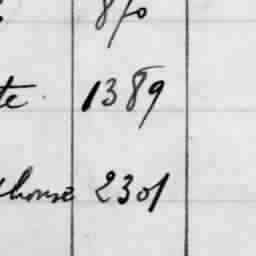 870
te 1389
house 2301